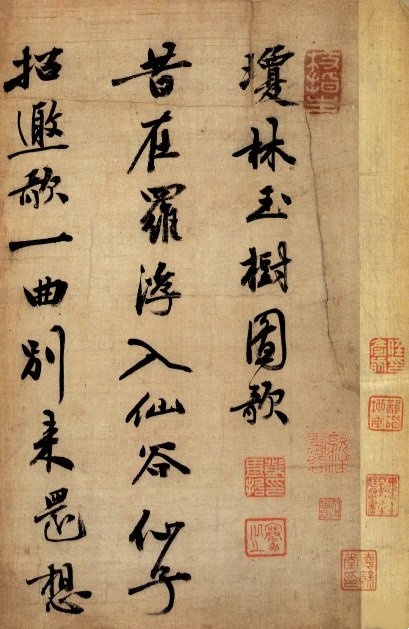 瓊林玉樹圖歌
昔在羅浮入仙谷仙子
招邀歌一曲別来還想